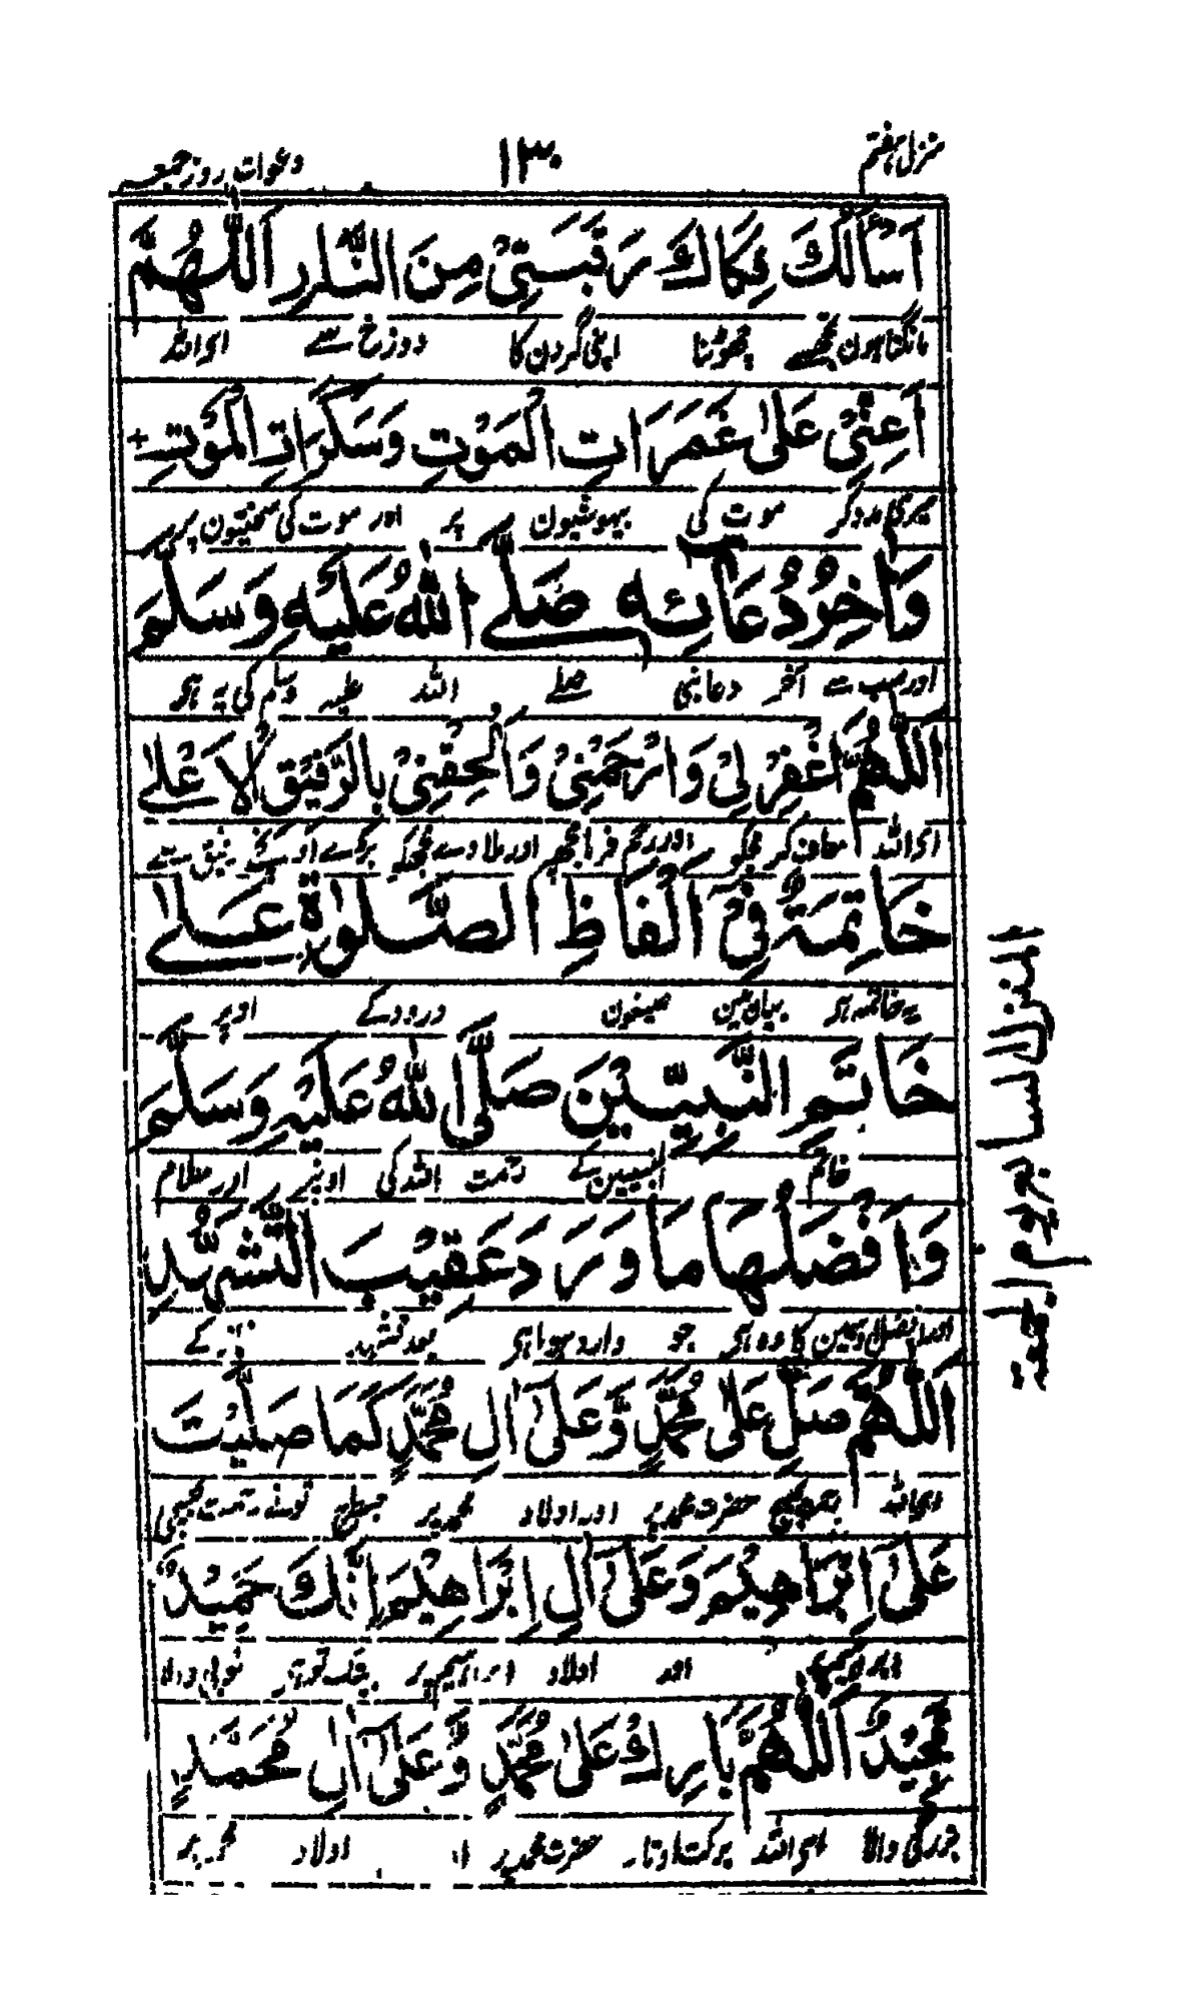 منزل ہفتم
۱۳۰
دعوات روز جمعہ
اَسْأَلُكَ فِكَاكَ رَقَبَتِيْ مِنَ النَّارِ اَللّٰهُمَّ
مانگتا ہون تجھسے چھوڑنا اپنی گردن کا دوزخ سے اے اللہ
اَعِنِّيْ عَلٰى غَمَرَاتِ الْمَوْتِ وَسَكَرَاتِ الْمَوْتِ
میری مدد کر موت کی بیہوشیون پر اور موت کی سختیون پر
وَاٰخِرُ دُعَائِهٖ صَلَّے اللّٰهُ عَلَيْهِ وَسَلَّمَ
اور سب سے آخر دعا نبی صلے اللہ علیہ وسلم کی یہ ہے
اَللّٰهُمَّ اغْفِرْ لِيْ وَارْحَمْنِيْ وَاَلْحِقْنِيْ بِالرَّفِيْقِ الْاَعْلٰى
اے اللہ معاف کر مجکو اور رحم فرا مجھپر اور ملا دے مجکو رفیق سے
خَاتِمَةٌ فِيْ اَلْفَاظِ الصَّلٰوةِ عَلٰے
یہ خاتمہ ہے بیان مین صیغون درود کے اوپر
خَاتَمِ النَّبِيّٖيْنَ صَلَّى اللّٰهُ عَلَيْهِ وَسَلَّمَ
خاتم النبیین کے رحمت اللہ کی اوپر اور سلام
وَاَفْضَلُهَا مَا وَرَدَ عَقِيْبَ التَّشَهُّدِ
اور افضل کا وہ ہے جو وارد ہوا ہے بعد تشہد کے
اَللّٰهُمَّ صَلِّ عَلٰى مُحَمَّدٍ وَّعَلٰى اٰلِ مُحَمَّدٍ كَمَا صَلَّيْتَ
اے اللہ رحمت بھیج حضرت محمد پر اور اولاد محمد پر جسطرح تونے رحمت بھیجی
عَلٰى اِبْرَاهِيْمَ وَعَلٰى اٰلِ اِبْرَاهِيْمَ اِنَّكَ حَمِيْدٌ
ابراہیم پر اور اولاد ابراہیم پر بیشک تو ہے
مَّجِيْدٌ اَللّٰهُمَّ بَارِكْ عَلٰى مُحَمَّدٍ وَّعَلٰى اٰلِ مُحَمَّدٍ
بزرگی والا اے اللہ برکت اوتار حضرت محمد پر اولاد محمد پر
المنزل السابع یوم الجمعة